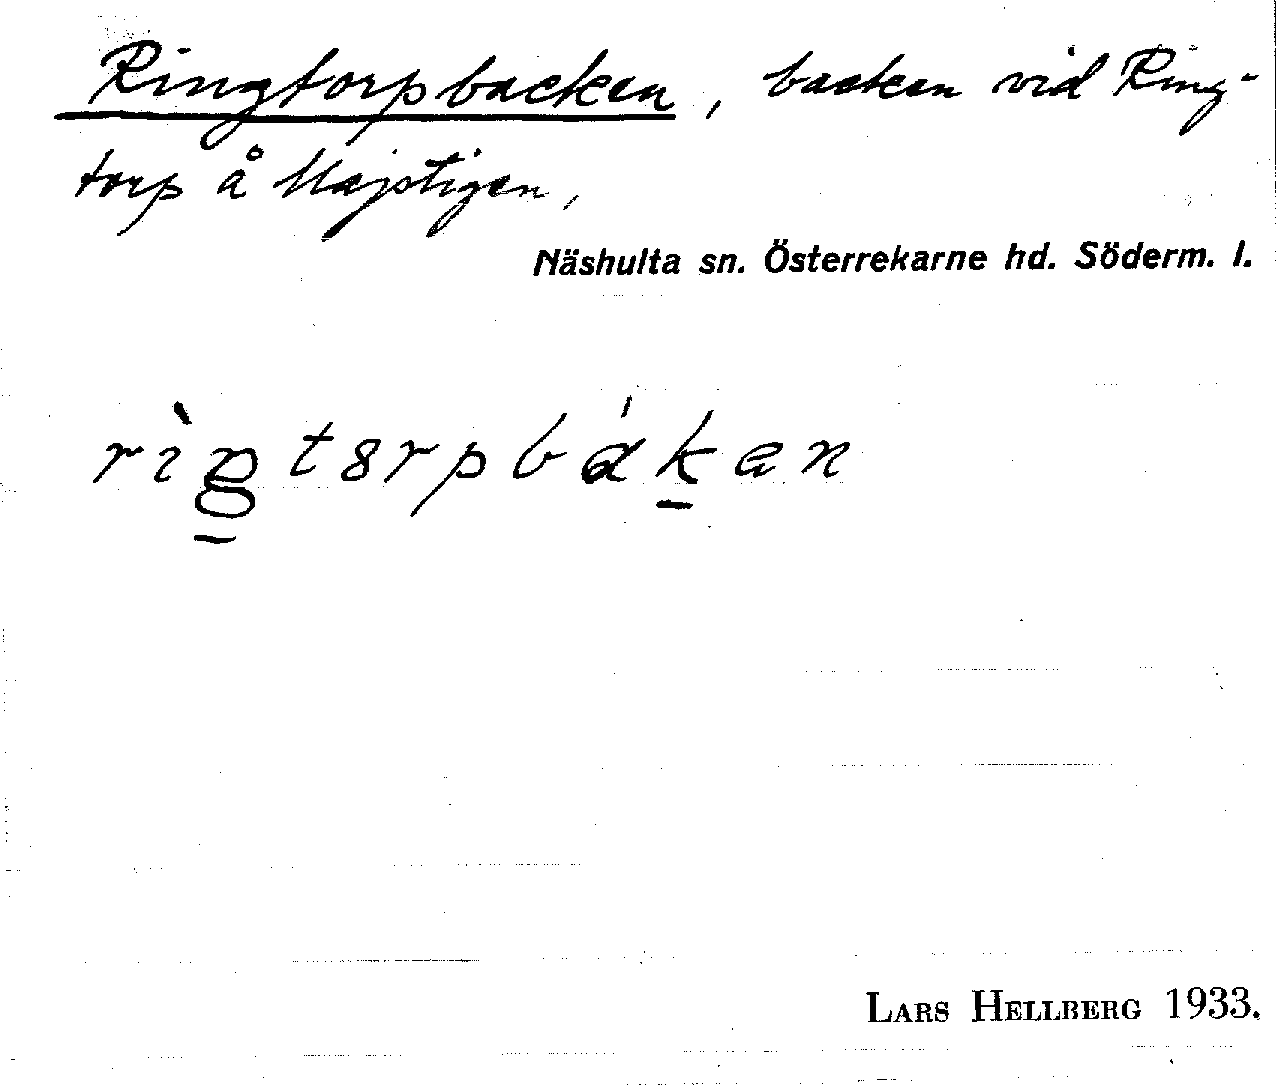 Ringtorpbacken, backen vid Ring-
torp å Majstigen,
Näshulta sn. Österrekarne hd. Söderm. l.
LARS HELLBERG 1933.